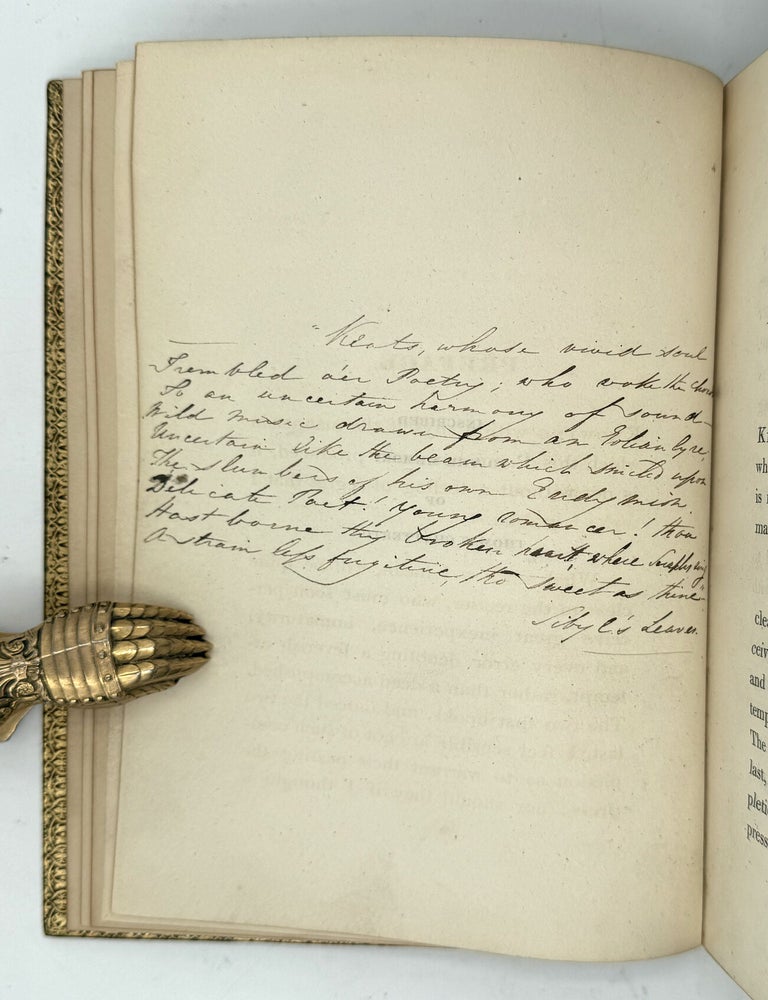 "Keats, whose vivid soul
Trembled o'er Poetry; who woke the chord
To an uncertain harmony of sound—
Wild music drawn from an Eolian lyre,
Uncertain like the beam which smiled upon
The slumbers of his own Endymion.
Delicate Poet! Young romancer! thou
Hast borne thy broken heart, where Seraphs sing
A strain less fugitive, tho' sweet as thine"
Sibyl's Leaves.
K
wh
is
ma
clea
ceiv
and
temp
The
last,
pleti
press